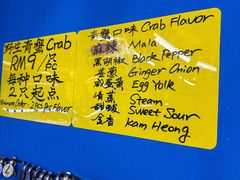 野生青蟹 Crab
RM9/只
每种口味
2只起点
Minimum Order 2 Pcs Per Flavor
青蟹口味 Crab Flavor
麻辣 Mala
黑胡椒 Black Pepper
姜葱 Ginger Onion
咸蛋 Egg Yolk
清蒸 Steam
甜酸 Sweet Sour
金香 Kam Heong